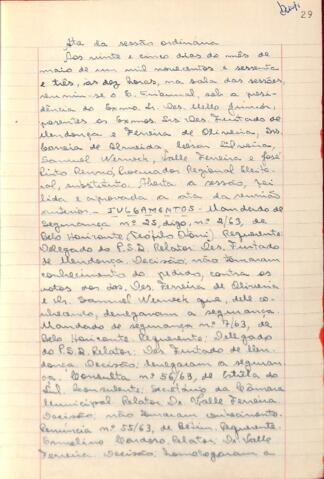 29
Ata da sessão ordinária
Aos vinte e cinco dias do mês de
maio de um mil novecentos e sessenta
e três, às dez horas, na sala das sessões,
reuniu-se o E. Tribunal, sob a presi-
dência do Exmo. Sr. Des. Mello Júnior,
presentes os Exmos. Srs. Des. Furtado de
Mendonça e Ferreira de Oliveira, Drs.
Correia de Almeida, Silveira,
Samuel Werneck, Valle Ferreira e José
Procurador Regional Eleito-
ral, substituto. Aberta a sessão, foi
lida e aprovada a ata da reunião
anterior. - JULGAMENTOS - Mandado de
Segurança nº 25, digo, nº 2/63, de
Belo Horizonte (Teófilo Otoni). Requerente:
Delegado do P.S.D. Relator: Des. Furtado
de Mendonça. Decisão: não tomaram
conhecimento do pedido, contra os
votos dos Des. Ferreira de Oliveira
e Dr. Samuel Werneck que, dele co-
nhecendo, denegaram a segurança.
Mandado de segurança nº 7/63, de
Belo Horizonte. Requerente: Delegado
do P.S.D. Relator: Des. Furtado de Men-
donça. Decisão: denegaram a seguran-
ça. Consulta nº 56/63, de
Sul. Consulente: Secretário da Câmara
Municipal. Relator: Dr. Valle Ferreira.
Decisão: não tomaram conhecimento.
Renúncia nº 55/63, de Requerente:
Cardoso. Relator: Dr. Valle
Ferreira. Decisão: homologaram a